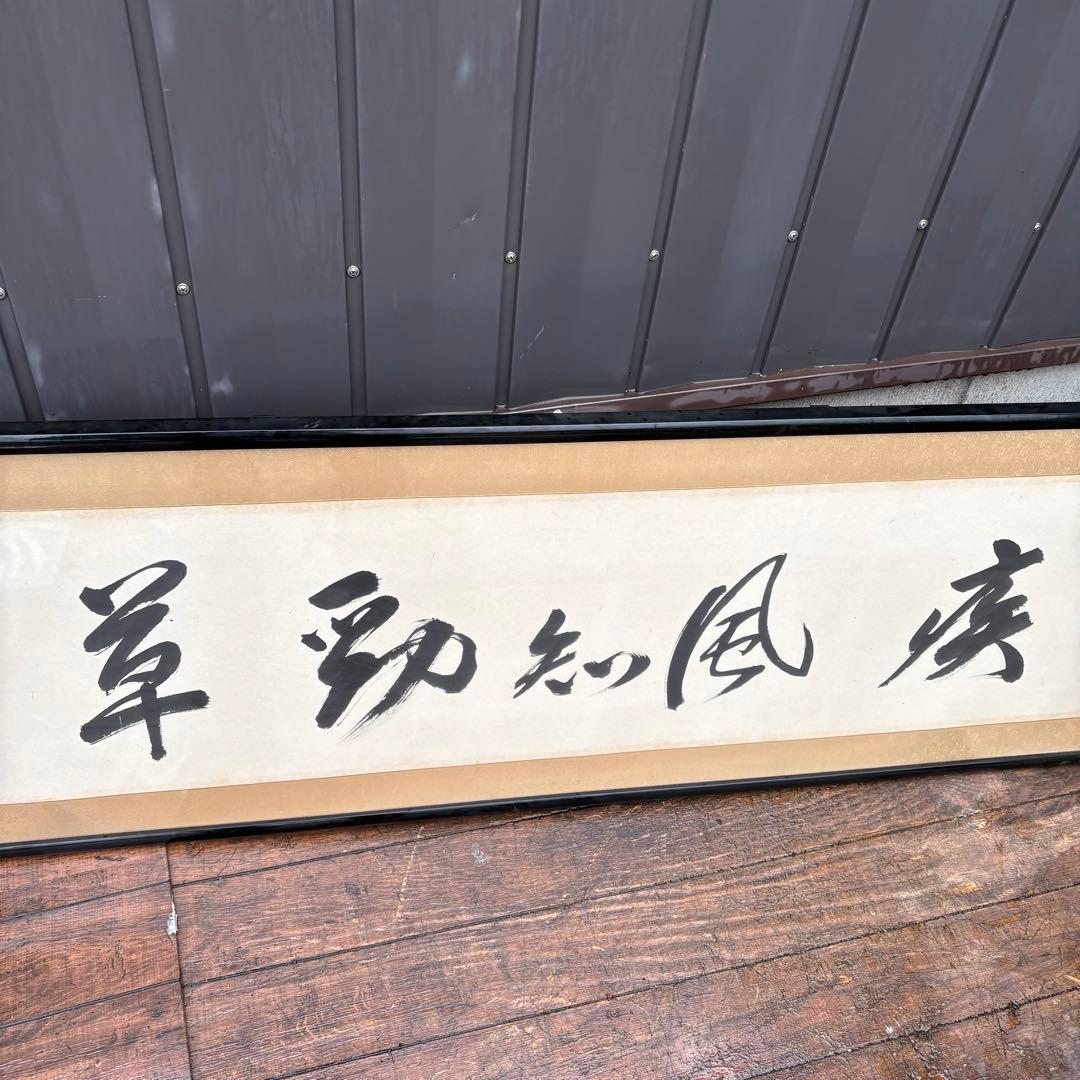 疾風知勁草